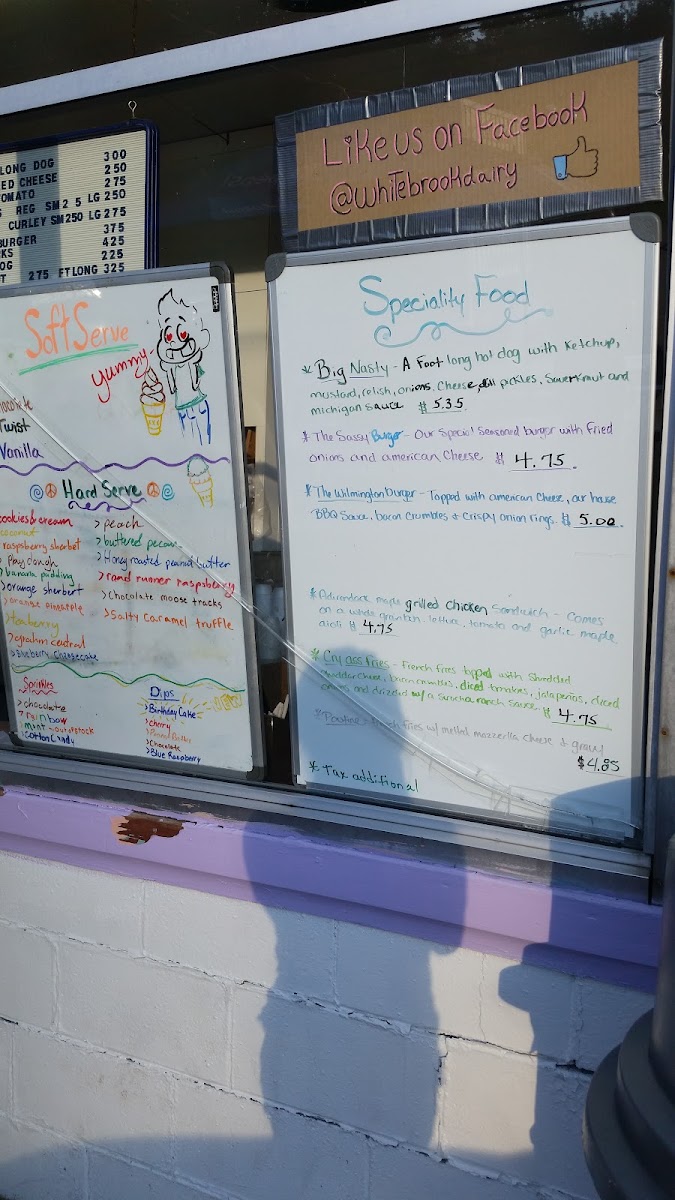 Like us on Facebook
@whitebrookdairy
LONG DOG 300
ED CHEESE 250
OMATO 275
S REG SM 2 5 LG 250
CURLEY SM250 LG275
375
BURGER 425
KS 225
OG
T 275 FTLONG 325
Soft Serve
yummy
hocolate
Twist
Vanilla
Hard Serve
cookies & cream
coconut
raspberry sherbet
Playdough
banana pudding
>orange sherbert
>orange pineapple
teaberry
>graham central
>Blueberry Cheesecake
>peach
>buttered pecan
>Honey roasted peanut butter
>road runner raspberry
>chocolate moose tracks
>Salty caramel truffle
Sprinkles
>chocolate
>rainbow
mint - out of stock
>cotton candy
Dips
>Birthday Cake
>cherry
>Peanut Butter
>Chocolate
>Blue Raspberry
Speciality Food
* Big Nasty - A Foot long hot dog with Ketchup,
mustard, relish, onions, cheese, dill pickles, Sauerkraut and
michigan sauce $ 5.35
* The Sassy Burger - Our Special Seasoned burger with fried
onions and american Cheese $ 4.75.
* The Wilmington Burger - Topped with american Cheese, our house
BBQ Sauce, bacon crumbles + Crispy Onion rings. $ 5.00
* Adirondack maple grilled chicken Sandwich - Comes
on a whole grain bun, lettuce, tomato and garlic maple
aioli $ 4.75
* Cry ass fries - French fries topped with Shredded
cheddar cheese, bacon crumbles, diced tomatoes, jalapeños, diced
onions and drizzled w/ a siracha ranch sauce. $ 4.75
* Poutine - french fries w/ melted mozzerella cheese + gravy
$4.85
* Tax additional